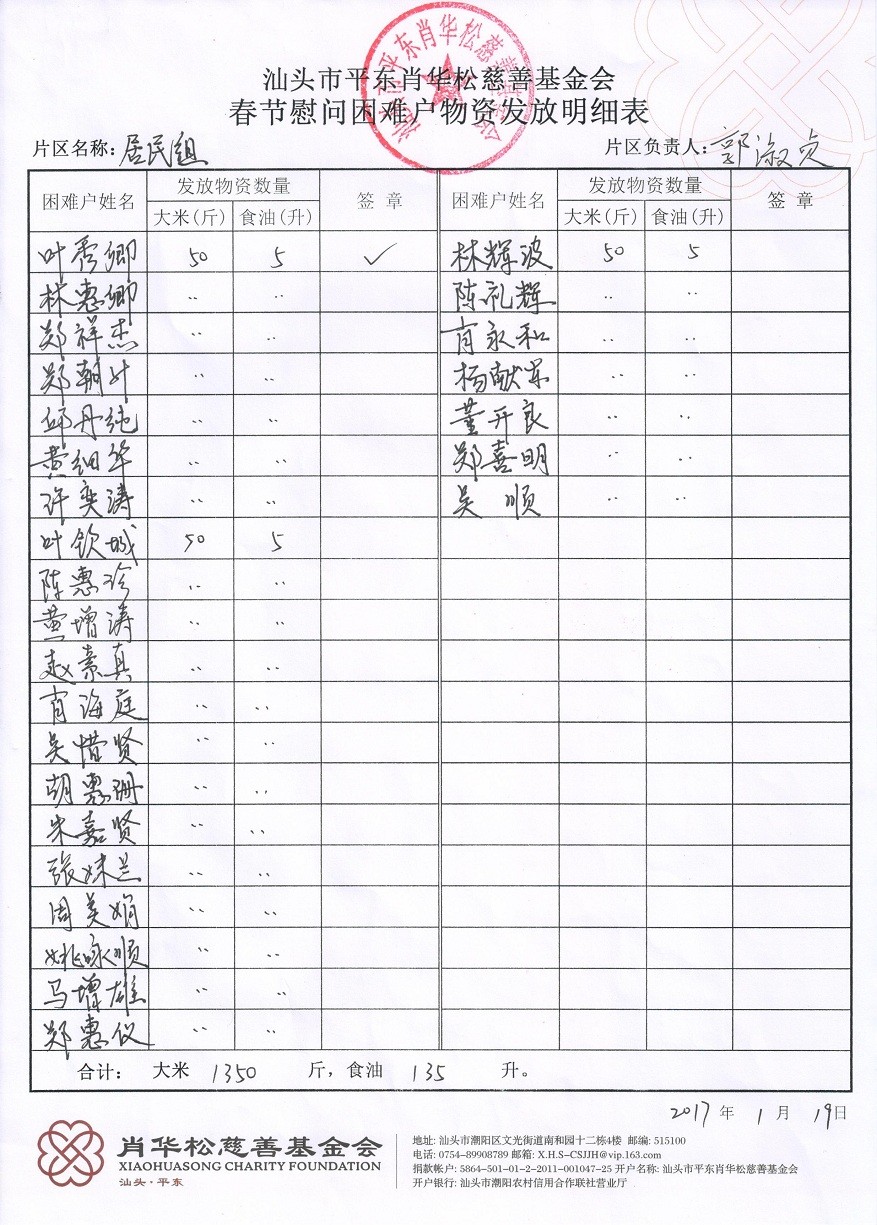 汕头市平东肖华松慈善基金会
汕头市平东肖华松慈善基金会
春节慰问困难户物资发放明细表
片区名称：居民组 片区负责人：郭淑贞
困难户姓名 发放物资数量 签 章 困难户姓名 发放物资数量 签 章
大米(斤) 食油(升) 大米(斤) 食油(升)
叶秀卿 50 5 ✓ 林辉波 50 5
林惠卿 ·· ·· 陈礼辉 ·· ··
郑祥杰 ·· ·· 肖永和 ·· ··
郑朝升 ·· ·· 杨献军 ·· ··
邱丹纯 ·· ·· 董开良 ·· ··
黄细华 ·· ·· 郑喜明 ·· ··
许奕涛 ·· ·· 吴顺 ·· ··
叶钦城 50 5
陈惠珍 ·· ··
黄增涛 ·· ··
赵素真 ·· ··
肖海庭 ·· ··
吴惜贤 ·· ··
胡惠珊 ·· ··
朱嘉贤 ·· ··
张妹兰 ·· ··
周美娟 ·· ··
姚咏顺 ·· ··
马增雄 ·· ··
郑惠仪 ·· ··
合计： 大米 1350 斤，食油 135 升。
2017 年 1 月 19日
肖华松慈善基金会
XIAOHUASONG CHARITY FOUNDATION
汕头·平东
地址: 汕头市潮阳区文光街道南和园十二栋4楼 邮编: 515100
电话: 0754-89908789 邮箱: X.H.S-CSJJH@vip.163.com
捐款帐户: 5864-501-01-2-2011-001047-25 开户名称: 汕头市平东肖华松慈善基金会
开户银行: 汕头市潮阳农村信用合作联社营业厅